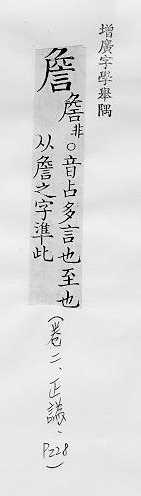 增廣字學舉隅
詹
詹非○音占多言也至也
从詹之字準此
(卷二、正譌、P228)